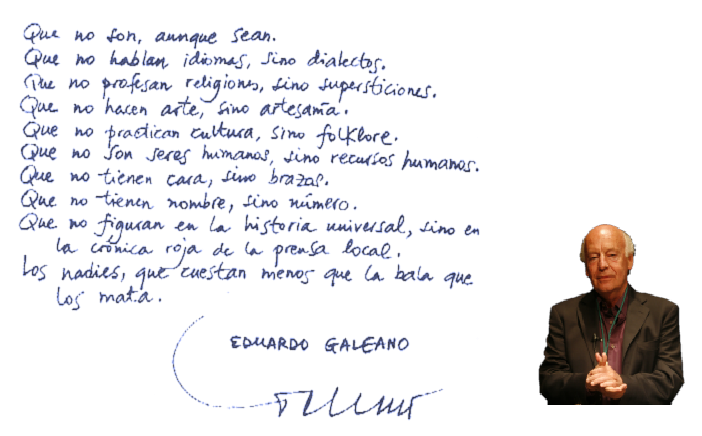 Que no son, aunque sean.
Que no hablan idiomas, sino dialectos.
Que no profesan religiones, sino supersticiones.
Que no hacen arte, sino artesanía.
Que no practican cultura, sino folklore.
Que no son seres humanos, sino recursos humanos.
Que no tienen cara, sino brazos.
Que no tienen nombre, sino número.
Que no figuran en la historia universal, sino en
la crónica roja de la prensa local.
Los nadies, que cuestan menos que la bala que
los mata.
EDUARDO GALEANO